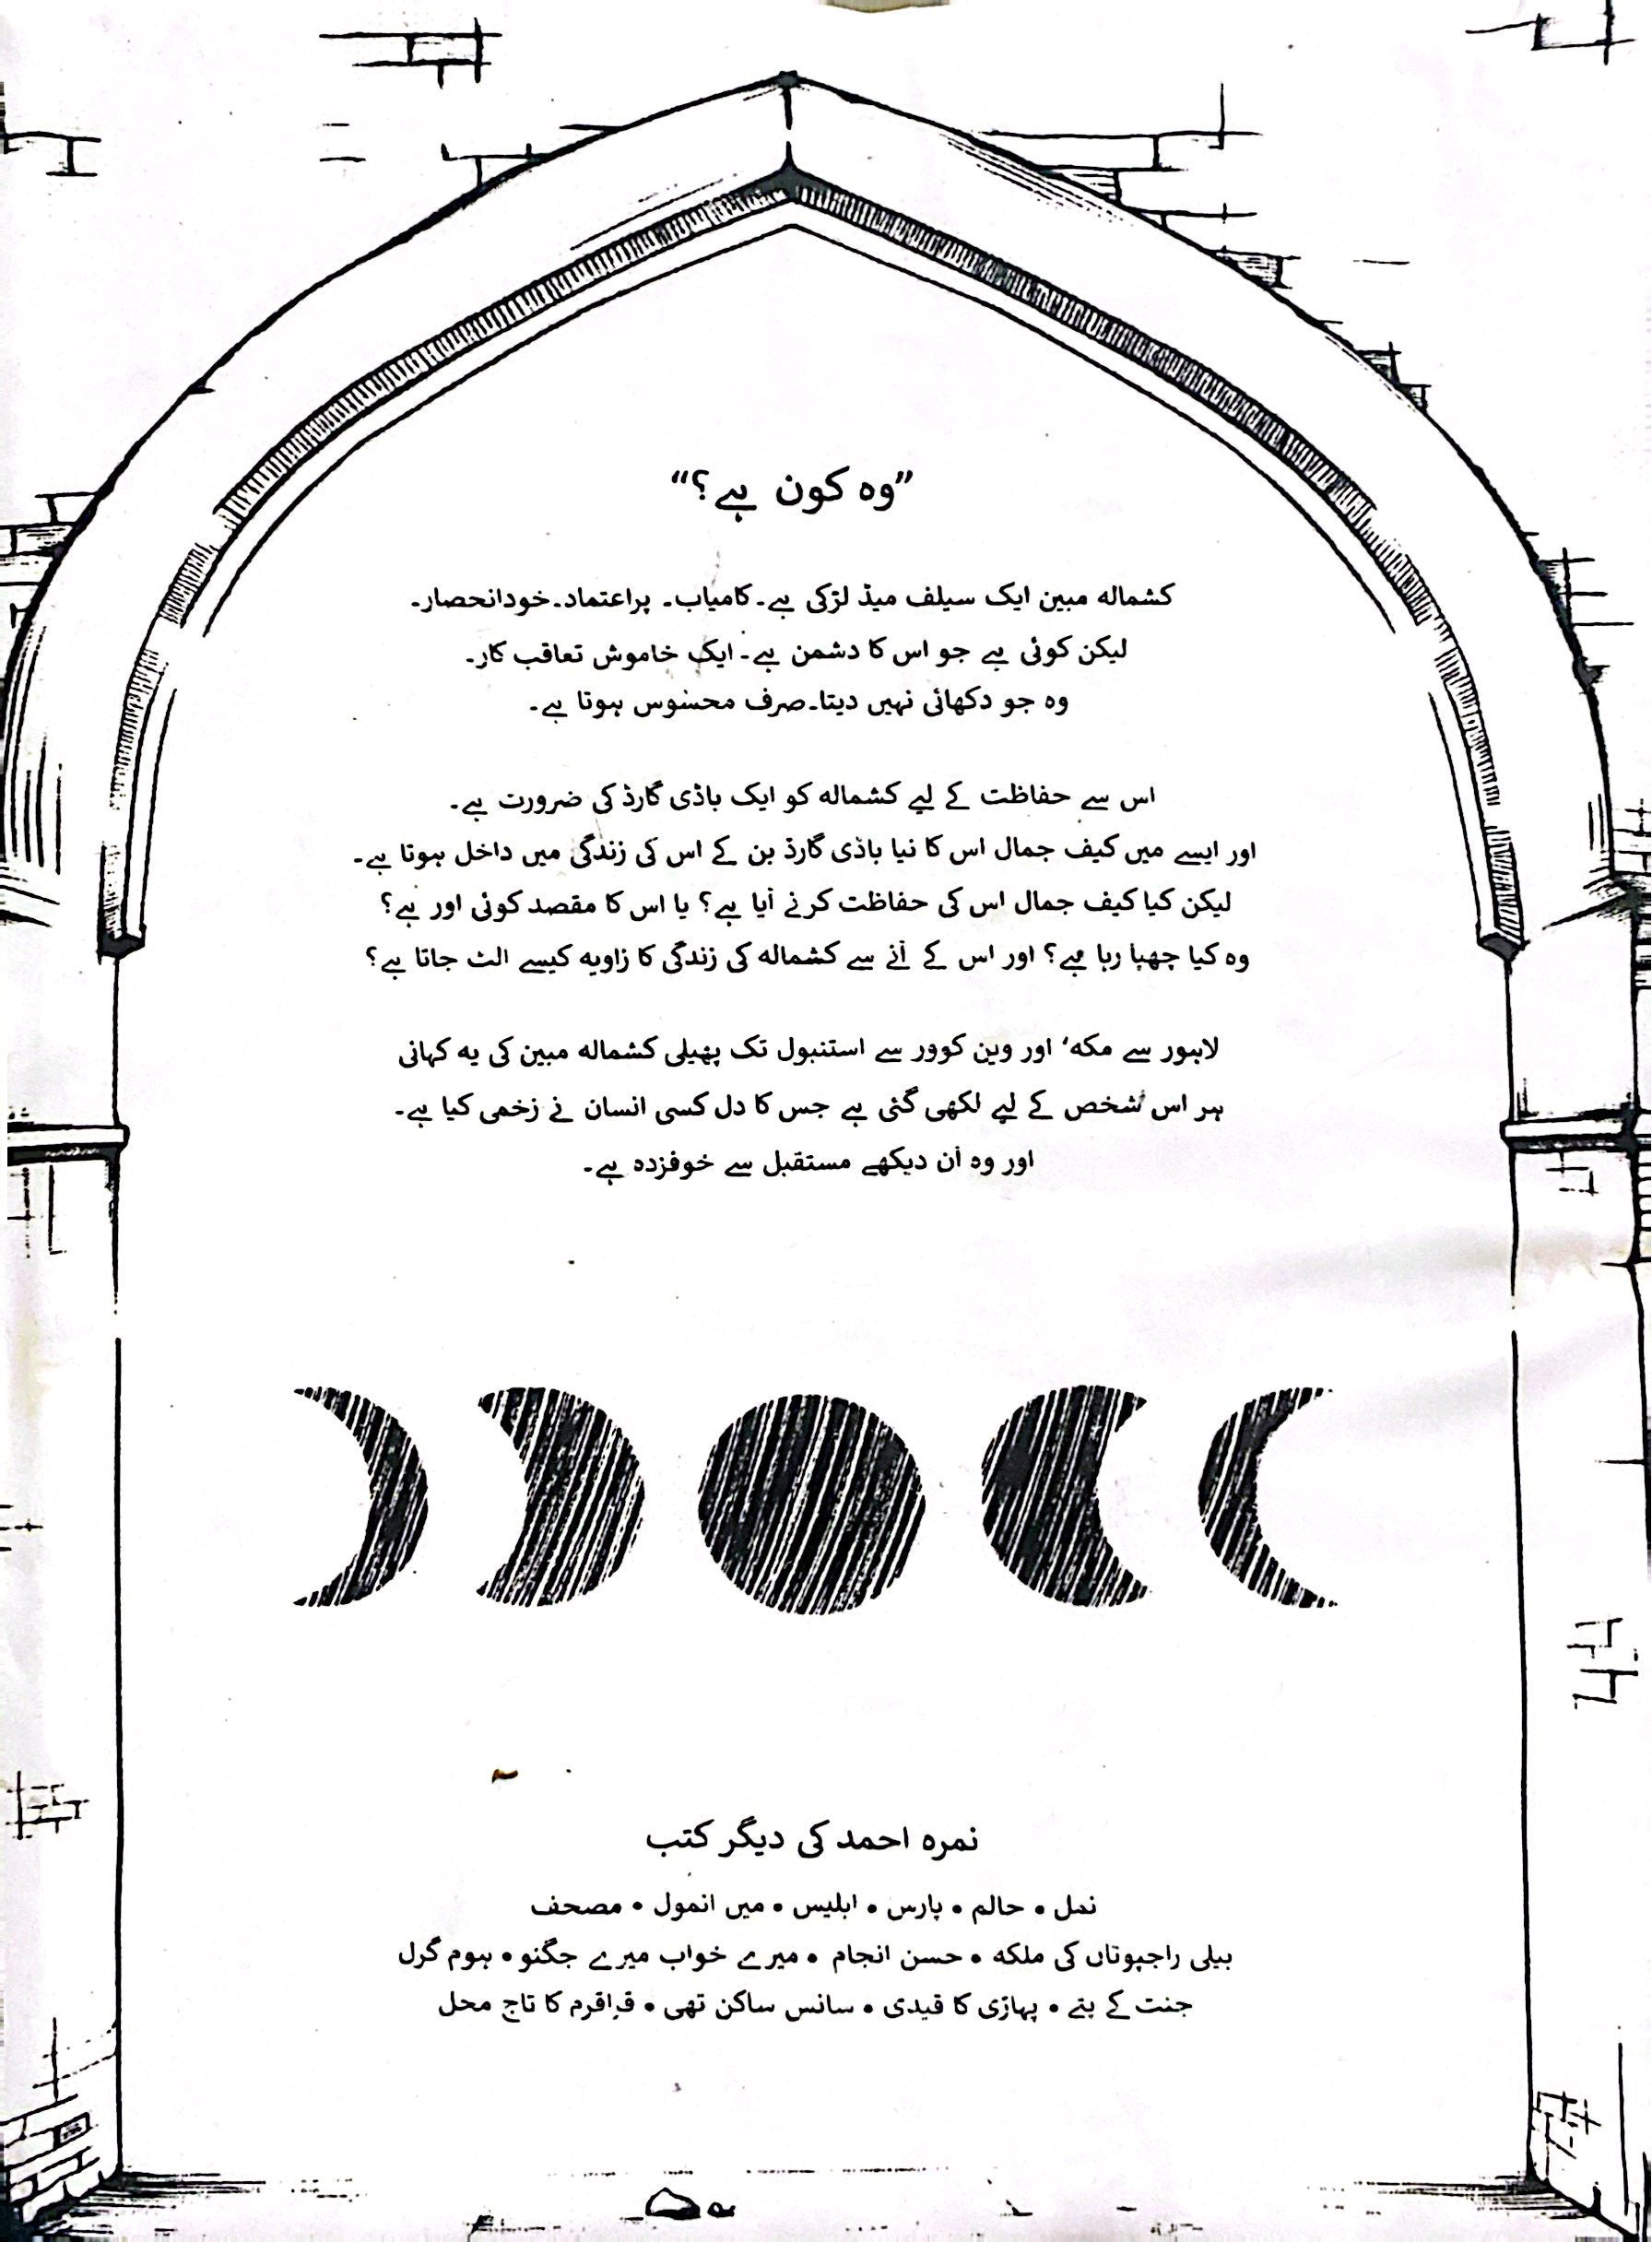 ”وہ کون ہے؟“
کشمالہ مبین ایک سیلف میڈ لڑکی ہے۔کامیاب۔ پراعتماد۔خودانحصار۔
لیکن کوئی ہے جو اس کا دشمن ہے۔ ایک خاموش تعاقب کار۔
وہ جو دکھائی نہیں دیتا۔صرف محسوس ہوتا ہے۔
اس سے حفاظت کے لیے کشمالہ کو ایک باڈی گارڈ کی ضرورت ہے۔
اور ایسے میں کیف جمال اس کا نیا باڈی گارڈ بن کے اس کی زندگی میں داخل ہوتا ہے۔
لیکن کیا کیف جمال اس کی حفاظت کرنے آیا ہے؟ یا اس کا مقصد کوئی اور ہے؟
وہ کیا چھپا رہا ہے؟ اور اس کے آنے سے کشمالہ کی زندگی کا زاویہ کیسے الٹ جاتا ہے؟
لاہور سے مکہ‘ اور وین کوور سے استنبول تک پھیلی کشمالہ مبین کی یہ کہانی
ہر اس شخص کے لیے لکھی گئی ہے جس کا دل کسی انسان نے زخمی کیا ہے۔
اور وہ اَن دیکھے مستقبل سے خوفزدہ ہے۔
نمرہ احمد کی دیگر کتب
نمل • حالم • پارس • ابلیس • میں انمول • مصحف
بیلی راجپوتاں کی ملکہ • حسن انجام • میرے خواب میرے جگنو • ہوم گرل
جنت کے پتے • پہاڑی کا قیدی • سانس ساکن تھی • قراقرم کا تاج محل